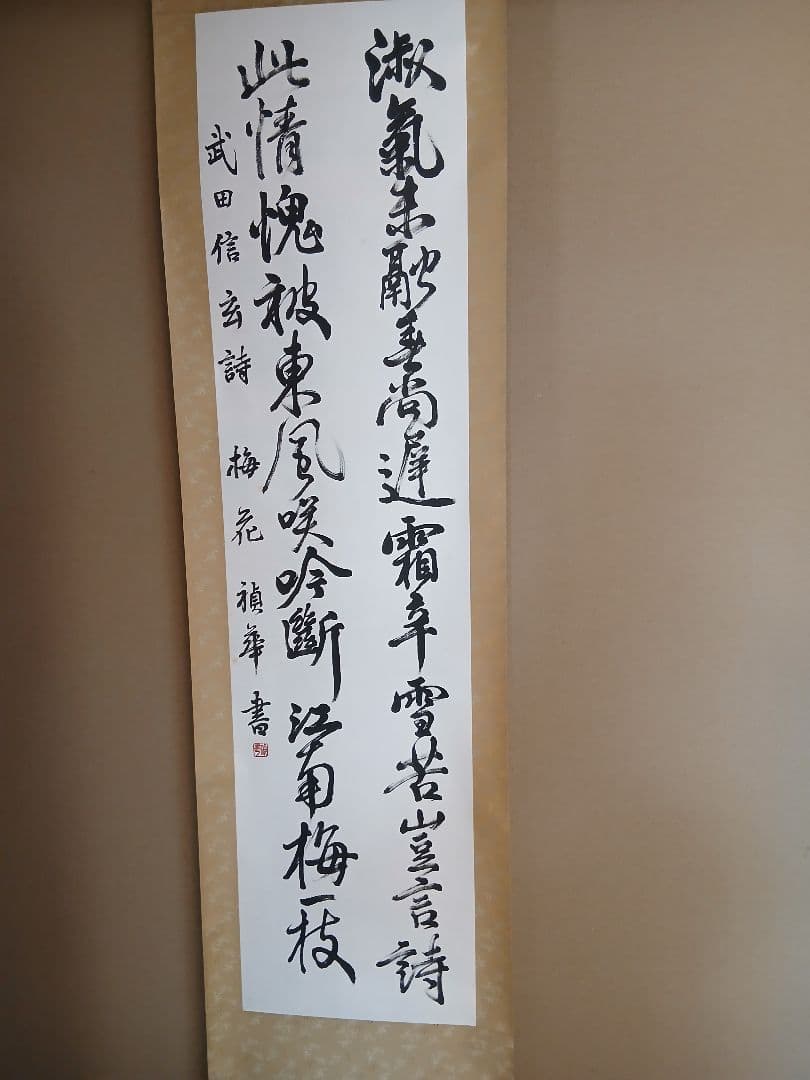 淑氣未融春尚遲霜辛雪苦豈言詩
此情愧被東風咲吟斷江南梅一枝
武田信玄詩 梅花 禎華書